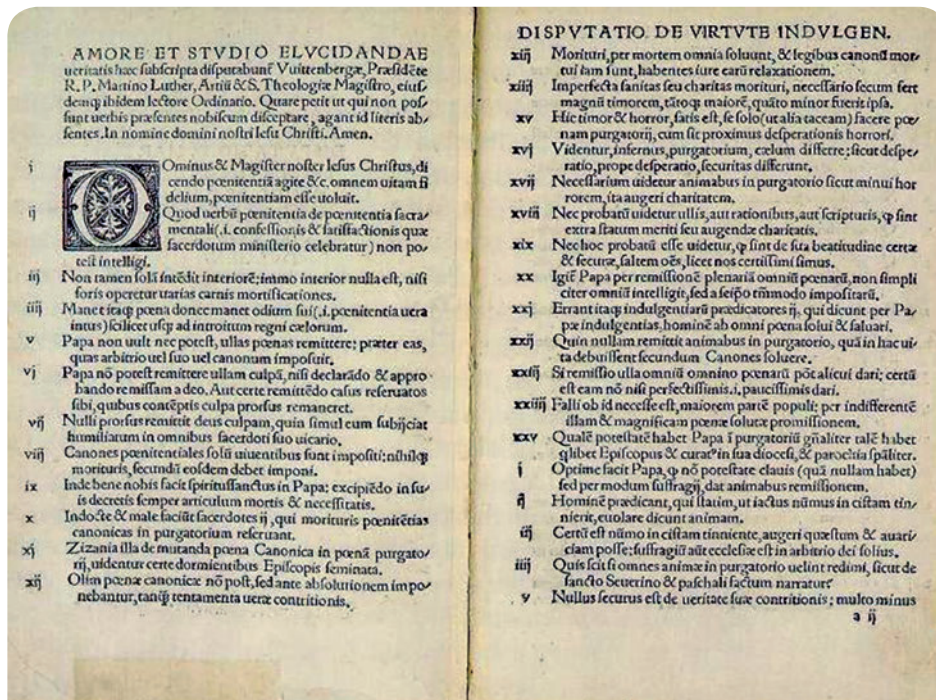 AMORE ET STVDIO ELVCIDANDAE
ueritatis hæc subscripta disputabunt̃ Vuittenbergæ, Præsidẽte
R. P. Martino Luther, Artiũ & S. Theologiæ Magistro, eius/
demq̃ ibidem lectore Ordinario. Quare petit ut qui non pos/
sunt uerbis præsentes nobiscum disceptare, agant id literis ab/
sentes. In nomine domini nostri Iesu Christi. Amen.
i DOminus & Magister noster Iesus Christus, di
cendo pœnitentiã agite &c. omnem uitam fi
delium, pœnitentiam esse uoluit.
ij Quod uerbũ pœnitentia de pœnitentia sacra/
mentali (.i. confessionis & satisfactionis quæ
sacerdotum ministerio celebratur) non po/
test intelligi.
iij Non tamen solã intẽdit interiorẽ: immo interior nulla est, nisi
foris operetur uarias carnis mortificationes.
iiij Manet itaq̃ pœna donec manet odium sui (.i. pœnitentia uera
intus) scilicet usq̃ ad introitum regni cælorum.
v Papa non uult nec potest, ullas pœnas remittere: præter eas,
quas arbitrio uel suo uel canonum imposuit.
vj Papa nõ potest remittere ullam culpã, nisi declarãdo & appro/
bando remissam a deo. Aut certe remittẽdo casus reseruatos
sibi, quibus contẽptis culpa prorsus remaneret.
vij Nulli prorsus remittit deus culpam, quin simul eum subijciat
humiliatum in omnibus sacerdoti suo uicario.
viij Canones pœnitentiales solũ uiuentibus sunt impositi: nihilq̃
morituris, secundũ eosdem debet imponi.
ix Inde bene nobis facit spiritussanctus in Papa: excipiẽdo in su/
is decretis semper articulum mortis & necessitatis.
x Indocte & male faciũt sacerdotes ij, qui morituris pœnitẽtias
canonicas in purgatorium reseruant.
xj Zizania illa de mutanda pœna Canonica in pœnã purgato/
rij, uidentur certe dormientibus Episcopis seminata.
xij Olim pœnæ canonicæ nõ post, sed ante absolutionem impo/
nebantur, tanq̃ tentamenta ueræ contritionis.
DISPVTATIO DE VIRTVTE INDVLGEN.
xiij Morituri, per mortem omnia soluunt, & legibus canonũ mor/
tui iam sunt, habentes iure earũ relaxationem.
xiiij Imperfecta sanitas seu charitas morituri, necessario secum fert
magnũ timorem, tãtoq̃ maiorẽ, quãto minor fuerit ipsa.
xv Hic timor & horror, satis est, se solo (ut alia taceam) facere pœ/
nam purgatorij, cum sit proximus desperationis horrori.
xvj Videntur, infernus, purgatorium, cælum differre: sicut despe/
ratio, prope desperatio, securitas differunt.
xvij Necessarium uidetur animabus in purgatorio sicut minui hor
rorem, ita augeri charitatem.
xviij Nec probatũ uidetur ullis, aut rationibus, aut scripturis, q̃ sint
extra statum meriti seu augendæ charitatis.
xix Nec hoc probatũ esse uidetur, q̃ sint de sua beatitudine certæ
& securæ, saltem oẽs, licet nos certissimi simus.
xx Igit̃ Papa per remissionẽ plenariã omniũ pœnarũ, non simpli
citer omniũ intelligit, sed a seipõ tm̃modo impositarũ.
xxj Errant itaq̃ indulgentiarũ prædicatores ij, qui dicunt per Pa/
pæ indulgentias, hominẽ ab omni pœna solui & saluari.
xxij Quin nullam remittit animabus in purgatorio, quã in hac ui/
ta debuissent secundum Canones soluere.
xxiij Si remissio ulla omniũ omnino pœnarũ põt alicui dari; certũ
est eam nõ nisi perfectissimis .i. paucissimis dari.
xxiiij Falli ob id necesse est, maiorem partẽ populi: per indifferentẽ
illam & magnificam pœnæ solutæ promissionem.
xxv Qualẽ potestatẽ habet Papa ĩ purgatoriũ gñaliter talẽ habet
q̃libet Episcopus & curat⁹ in sua diocesi, & parochia sp̃aliter.
j Optime facit Papa, q̃ nõ potestate clauis (quã nullam habet)
sed per modum suffragij, dat animabus remissionem.
ij Hominẽ prædicant, qui statim, ut iactus nũmus in cistam tin/
nierit, euolare dicunt animam.
iij Certũ est nũmo in cistam tinniente, augeri quæstum & auari/
ciam posse: suffragiũ aũt ecclesiæ est in arbitrio dei solius.
iiij Quis scit si omnes animæ in purgatorio uelint redimi, sicut de
sancto Seuerino & paschali factum narratur?
v Nullus securus est de ueritate suæ contritionis; multo minus
a ij